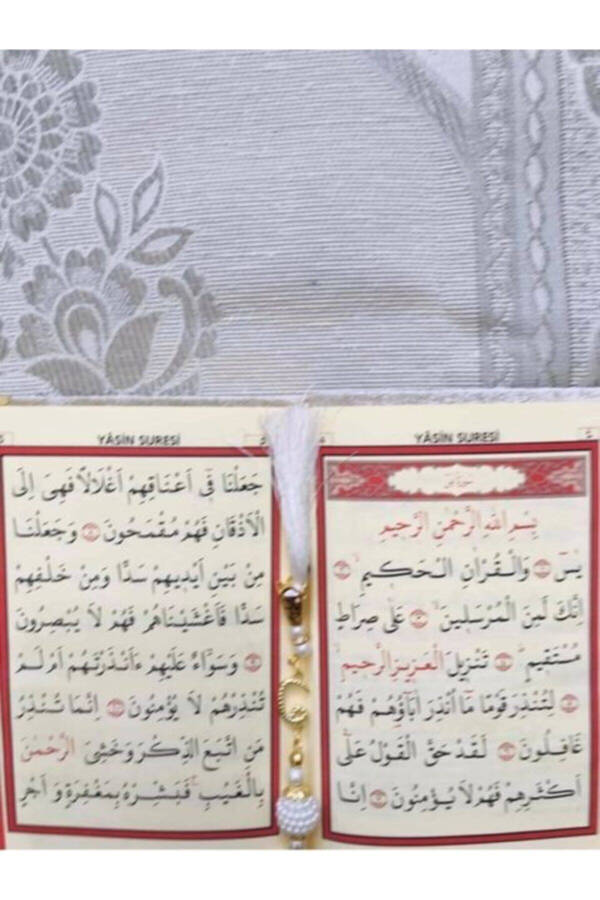 YÂSİN SURESİ
بِسْمِ اللّٰهِ الرَّحْمٰنِ الرَّح۪يمِ
يٰسٓ وَالْقُرْاٰنِ الْحَك۪يمِۙ
اِنَّكَ لَمِنَ الْمُرْسَل۪ينَۙ عَلٰى صِرَاطٍ
مُسْتَق۪يمٍۜ تَنْز۪يلَ الْعَز۪يزِ الرَّح۪يمِۙ
لِتُنْذِرَ قَوْمًا مَٓا اُنْذِرَ اٰبَٓاؤُ۬هُمْ فَهُمْ
غَافِلُونَ لَقَدْ حَقَّ الْقَوْلُ عَلٰٓى
اَكْثَرِهِمْ فَهُمْ لَا يُؤْمِنُونَ اِنَّا
YÂSİN SURESİ
جَعَلْنَا ف۪ٓي اَعْنَاقِهِمْ اَغْلَالًا فَهِيَ اِلَى
الْاَذْقَانِ فَهُمْ مُقْمَحُونَ وَجَعَلْنَا
مِنْ بَيْنِ اَيْد۪يهِمْ سَدًّا وَمِنْ خَلْفِهِمْ
سَدًّا فَاَغْشَيْنَاهُمْ فَهُمْ لَا يُبْصِرُونَ
وَسَوَٓاءٌ عَلَيْهِمْ ءَاَنْذَرْتَهُمْ اَمْ لَمْ
تُنْذِرْهُمْ لَا يُؤْمِنُونَ اِنَّمَا تُنْذِرُ
مَنِ اتَّبَعَ الذِّكْرَ وَخَشِيَ الرَّحْمٰنَ
بِالْغَيْبِۚ فَبَشِّرْهُ بِمَغْفِرَةٍ وَاَجْرٍ